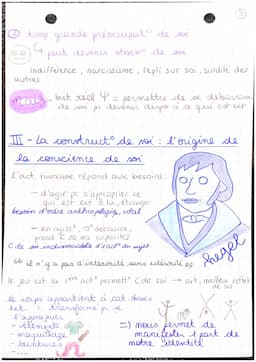 ③
② trop grande préoccupat° de soi
↳ peut devenir obsess° de soi
indifférence, narcissisme, repli sur soi, surdité des
autres
but réel Ψ = permettre de se débarrasser
de soi pr devenir dispo à ce qui est ext
III - La construct° de soi : l'origine de
la conscience de soi
L'act. humaine répond aux besoins :
- d'agir pr s'approprier ce
qui est ext à lui, étranger
besoin d'ordre anthropologiq, vital
- en agisst, O découvre,
prend C de ses capacités
C de soi indissociable d'act° du sujet
" il n'y a pas d'intériorité sans extériorité "
Hegel
le jeu est la 1ère act° permett° C de soi → art, meilleur reflet
de soi
le corps appartient à cat. choses
ext : transforme pr se
l'approprier
- vêtements
- maquillage
- teintures
- ...
⇒ nous permet de
manifester 1 part de
notre identité